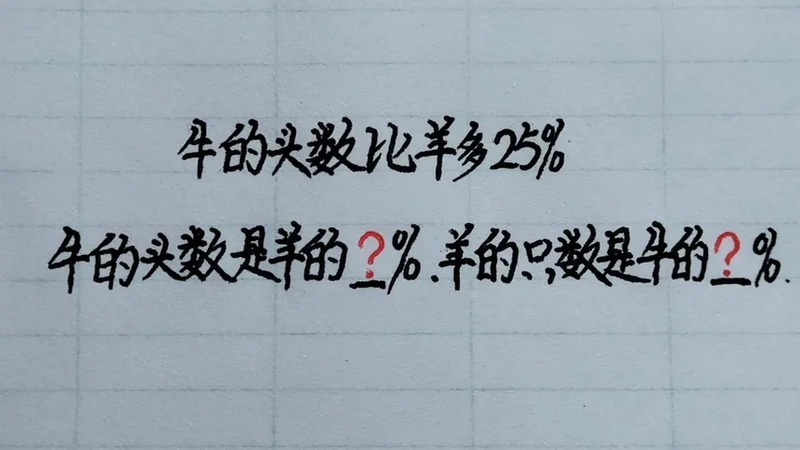 牛的头数比羊多25%
牛的头数是羊的?%.羊的只数是牛的?%.